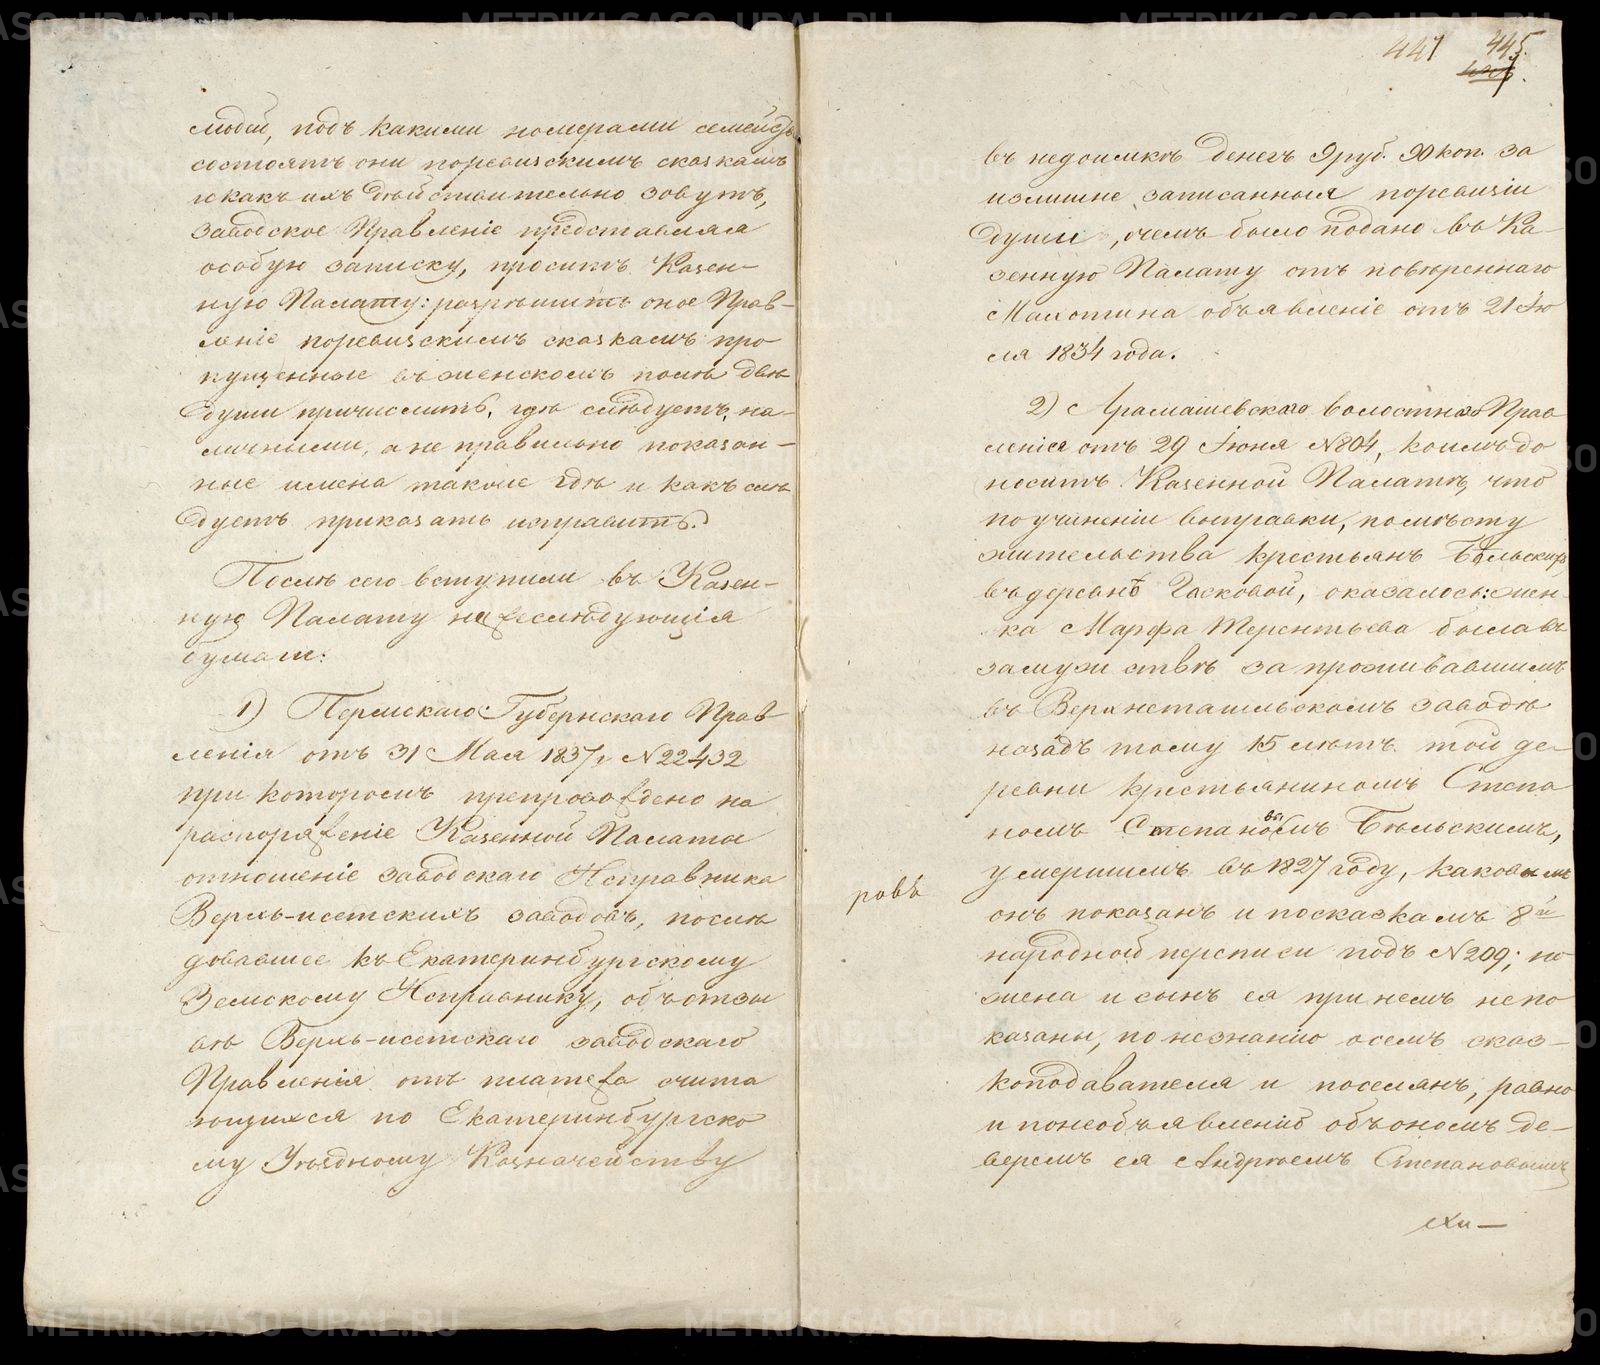 людей, подъ какими номерами семействъ
состоятъ они поревизскимъ сказкамъ
и какъ ихъ действительно зовутъ,
Заводское Правленіе представляя
особую записку, проситъ Казен-
ную Палату: разрѣшить оное Прав-
леніе поревизскимъ сказкамъ про
пущенные въ женскомъ полѣ двѣ
души причислить, гдѣ слѣдуетъ, на-
личными, а не правильно показан-
ные имена такоже гдѣ и какъ слѣ
дуетъ приказать исправить.
Послѣ сего вступили въ Казен-
ную Палату нижеслѣдующія
бумаги:
1) Пермскаго Губернскаго Прав
ленія отъ 31 Мая 1837 г. N 22432
при которомъ препровождено на
распоряженіе Казенной Палаты
отношеніе заводскаго Исправника
Верхъ-исетскихъ заводовъ, послѣ
довавшее къ Екатеринбургскому
Земскому Исправнику, объ отзы
вѣ Верхъ-исетскаго заводскаго
Правленія отъ платежа счита
ющихся по Екатеринбургско
му Уѣздному Казначейству
441 445
въ недоимкѣ денегъ 9 руб. 90 коп. за
излишне записанныя поревизіи
души, очемъ было подано въ Ка-
зенную Палату отъ повѣреннаго
Малотина объявленіе отъ 21 Ію
ля 1834 года.
2) Арамашевскаго волостнаго Прав
ленія отъ 29 Іюня N 804, коимъ до
носитъ Казенной Палатѣ, что
по учиненіи выправки, по мѣсту
жительства крестьянъ Бѣльскихъ,
въ деревнѣ Часковой, оказалось: жен-
ка Марфа Терентьева была въ
замужствѣ за проживавшимъ
въ Верхнетагильскомъ заводѣ
назадъ тому 15 лѣтъ той де-
ревни крестьяниномъ Степа
номъ Степановымъ Бѣльскимъ,
умершимъ въ 1827 году, каковымъ
ровъ
онъ показанъ и посказкамъ 8й
народной переписи подъ N 209; но
жена и сынъ ея при немъ не по
казаны, по незнанію о семъ сказ-
коподавателя и поселянъ, равно
и понеобъявленію объ ономъ де-
веремъ ея Андрѣемъ Степановымъ